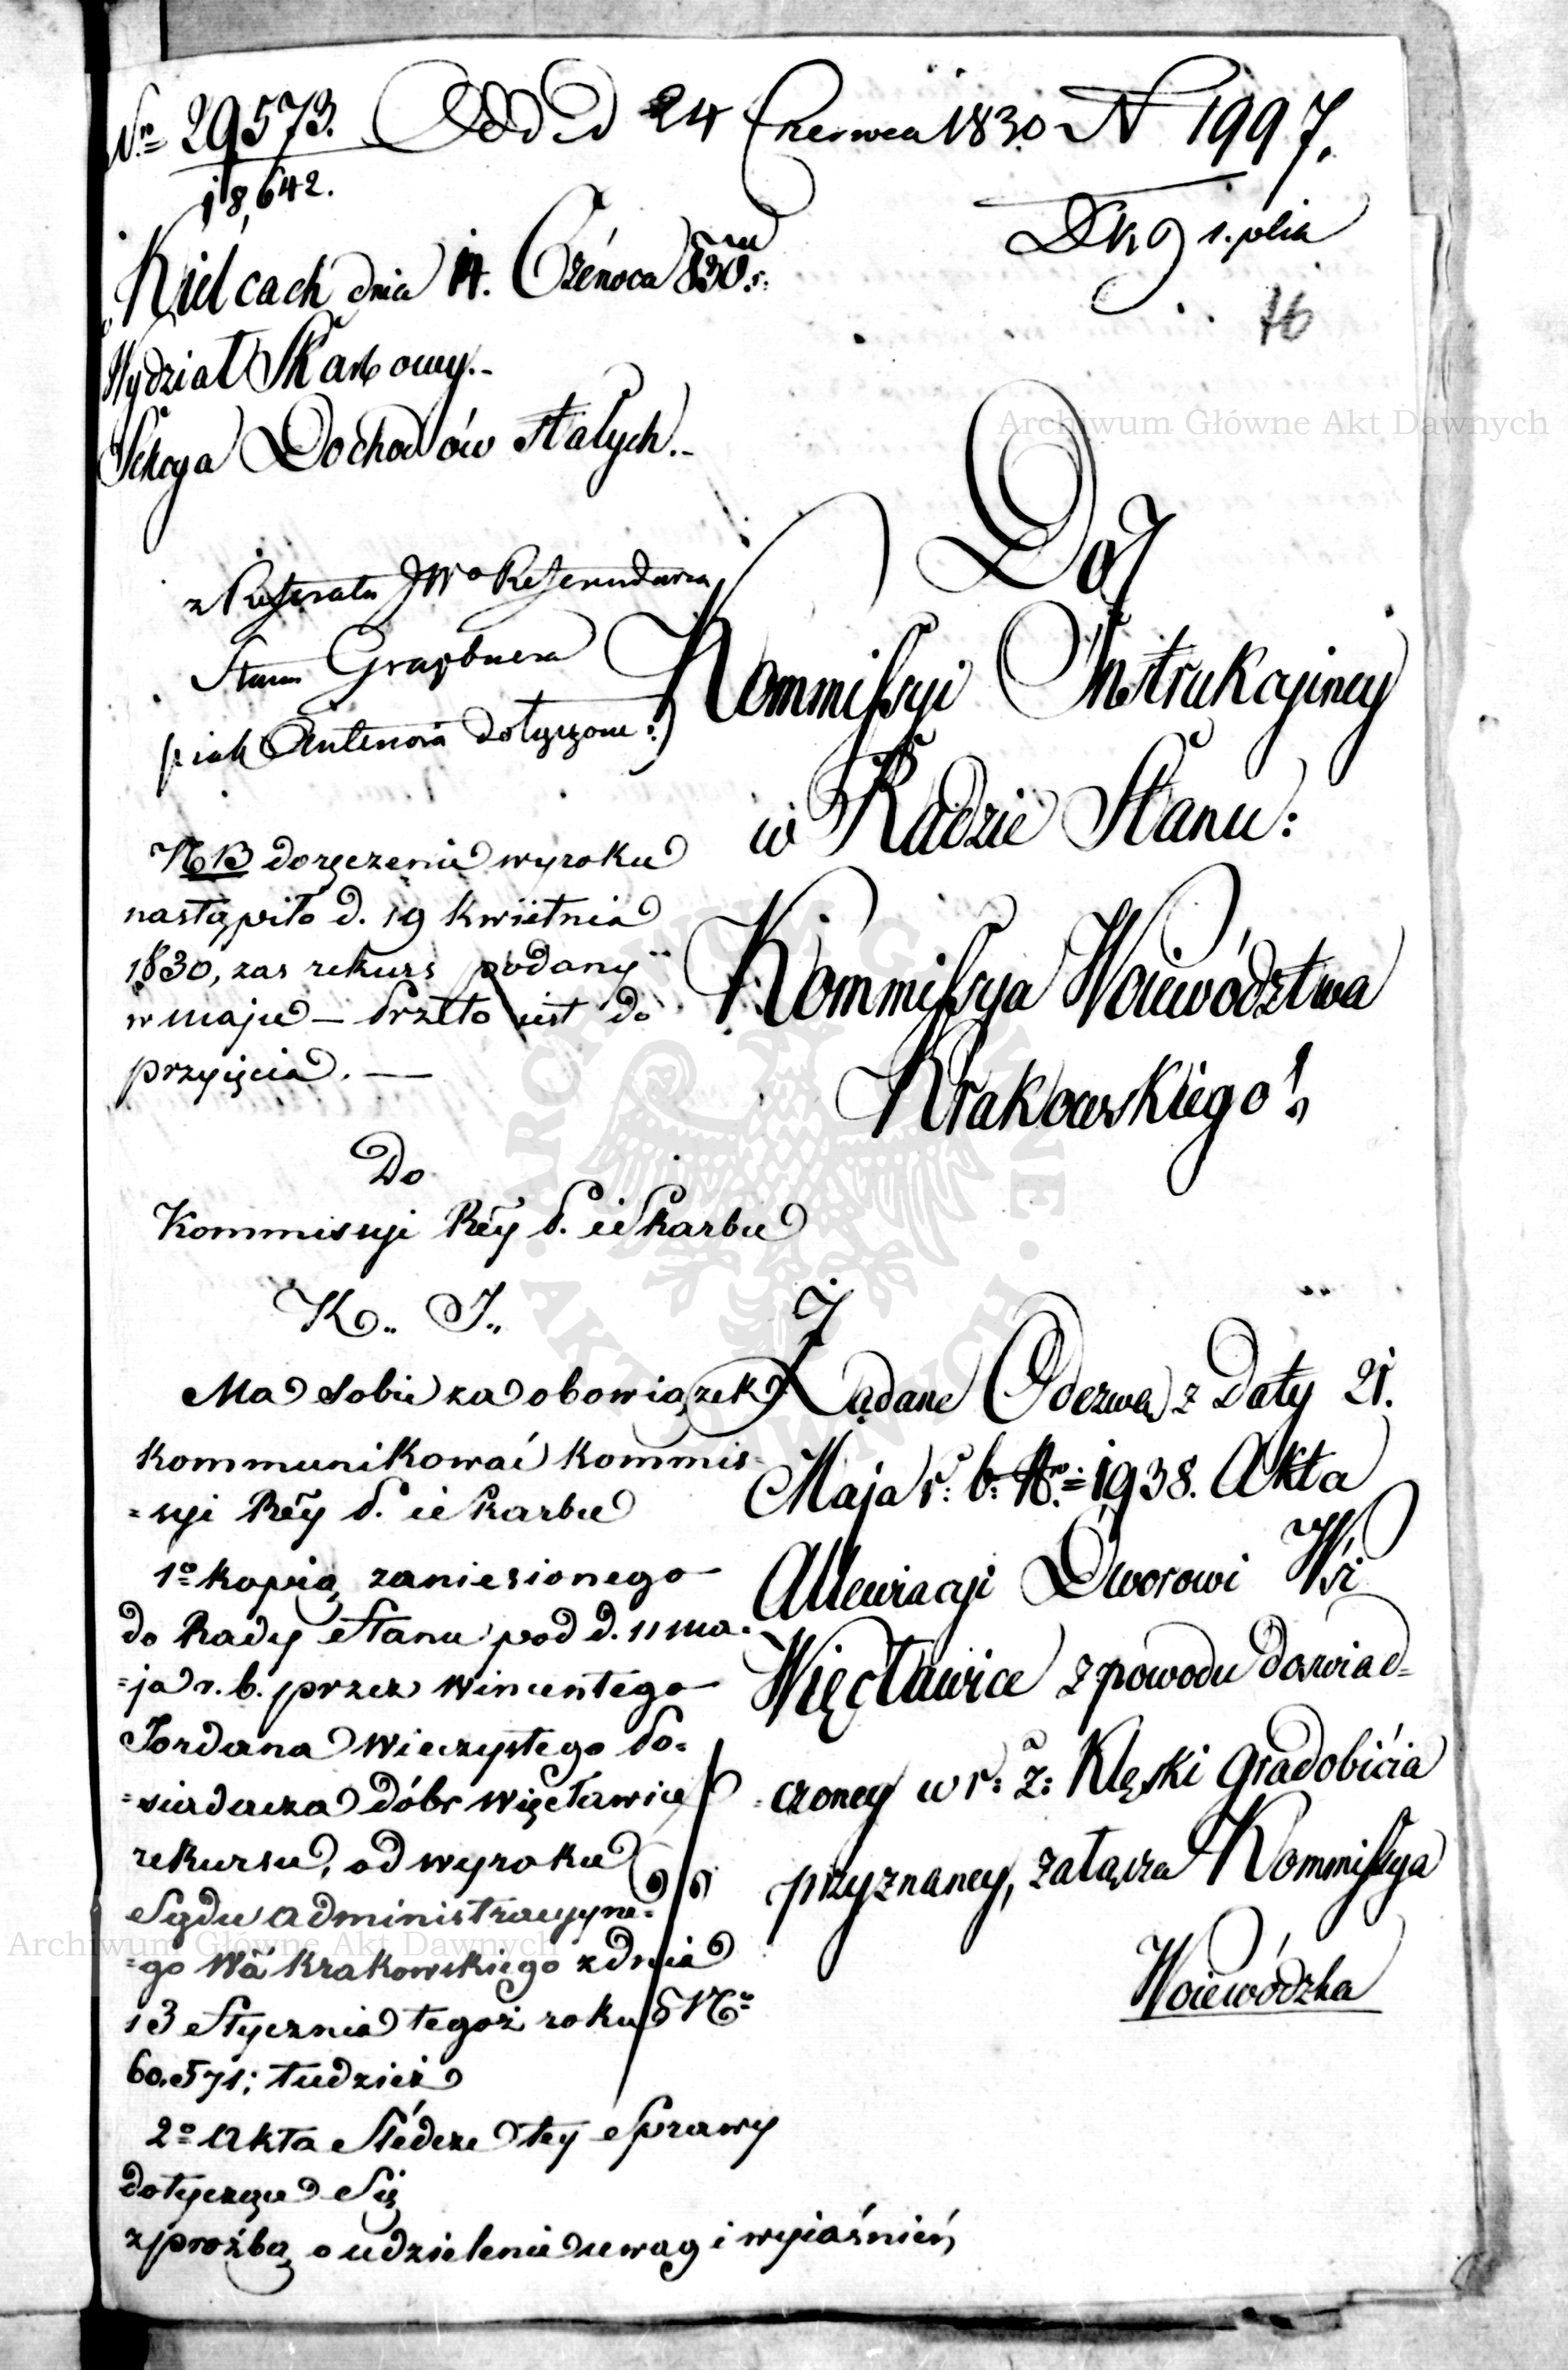 Nro 29573. Odd d 24 Czerwca 1830 N 1997.
18,642.
Kielcach dnia 14. Czérwca 1830 r:
s. polia
16
Wydział Skarbowy.-
Sekcya Dochodów Stałych.-
Archiwum Główne Akt Dawnych
z Referatu JWo Referendarza
Stanu Graybnera
(: iak Antenora dotyczone :)
Do
Kommissyi Instrukcyiney
w Radzie Stanu:
NB doręczenie wyroku
nastąpiło d. 19 kwietnia
1830, zas rekurs podany
w maju — Przeto iest do
przyięcia. —
Kommissya Woiewództwa
Krakowskiego!
Do
Kommissyi Réy P. i Skarbu
K.. I..
Ma Sobie za obowiązek
kommunikować Kommis-
=syi Réy P. i Skarbu
1o kopią zaniesionego
do Rady Stanu pod d. 11 ma-
=ja r. b. przez Wincentego
Jordana Wieczystego Po-
=siadacza dóbr Więcławice
rekursu, od wyroku
Sądu administracyyne=
=go Wa Krakowskiego z dnia
13 Stycznia tegoż roku No
60,571; tudzież
2o Akta Śledcze tey Sprawy
dotyczące Się
z prośbą o udzielenie uwag i wyiaśnień
Żądane Odezwą z Daty 21.
Maja r: b: Nro 1938. Akta
Allewiacyi Dworowi Wsi
Więcławice z powodu doświad=
=czoney w r: z: Klęski Gradobicia
przyznaney, załącza Kommissya
Woiewódzka
Archiwum Główne Akt Dawnych
ARCHIWUM GŁÓWNE AKT DAWNYCH